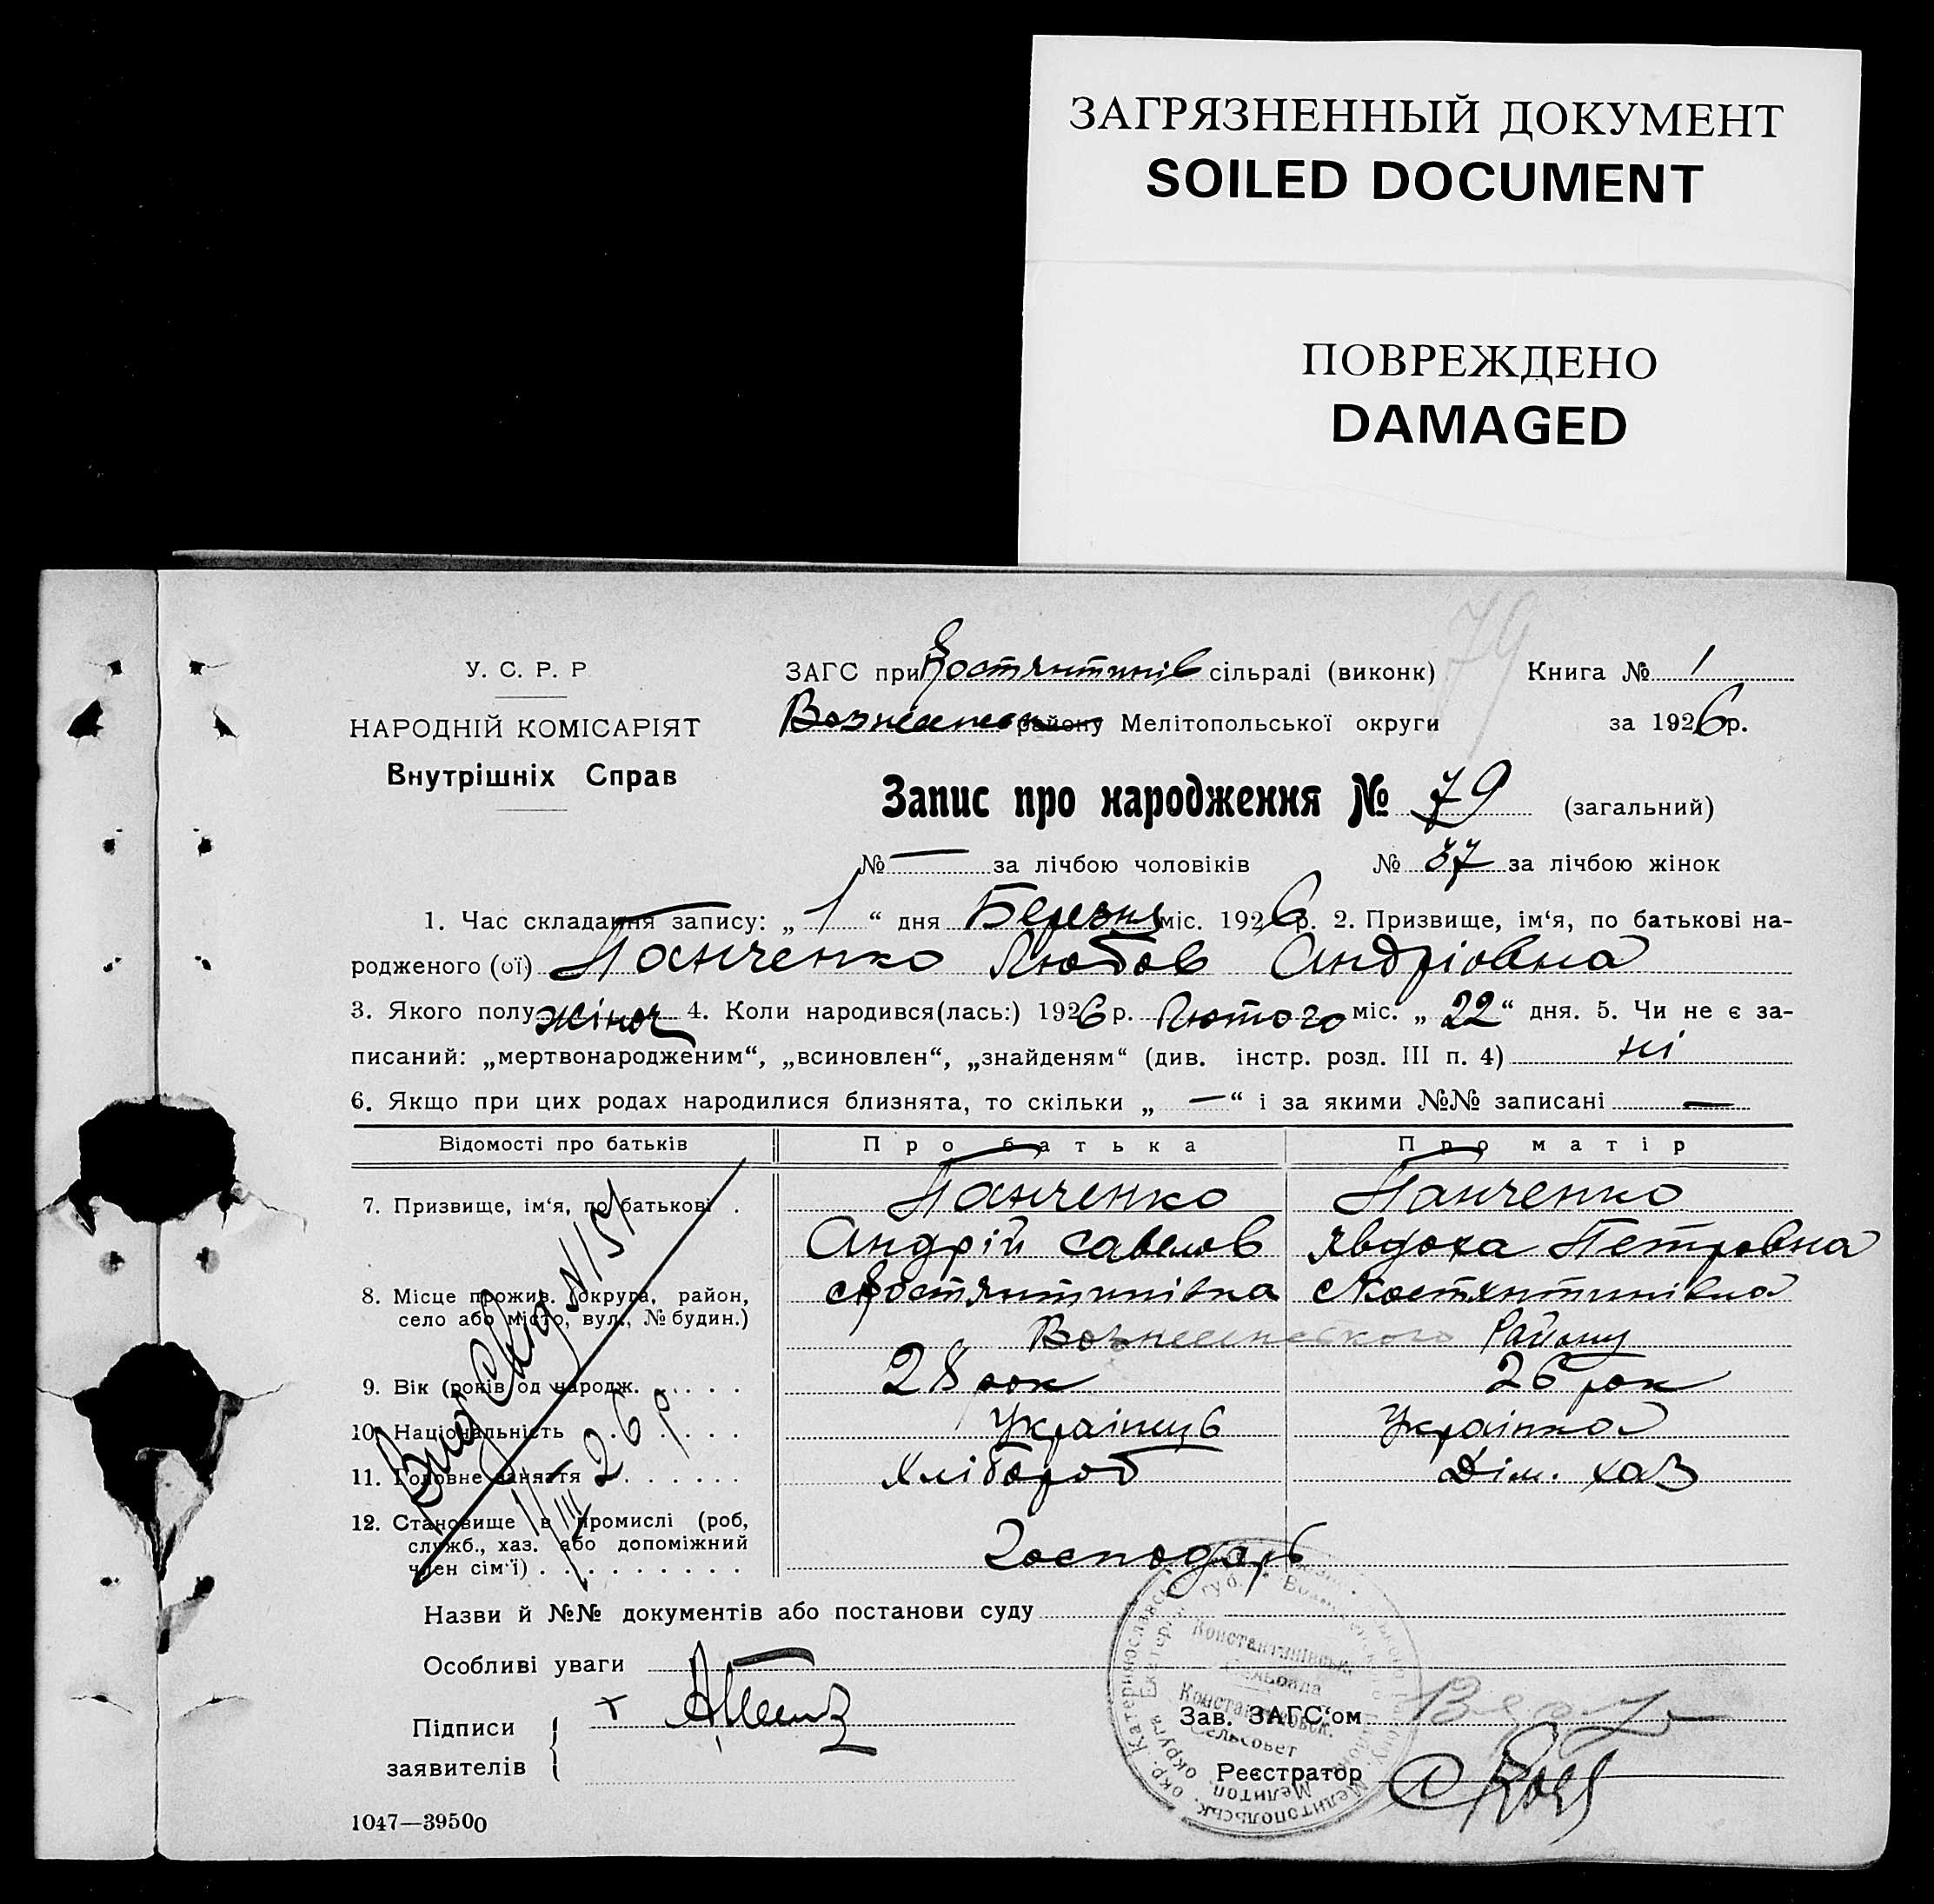 ЗАГРЯЗНЕННЫЙ ДОКУМЕНТ
SOILED DOCUMENT
ПОВРЕЖДЕНО
DAMAGED
79
У. С. Р. Р
НАРОДНІЙ КОМІСАРІЯТ
Внутрішніх Справ
ЗАГС при Костянтинів сільраді (виконк) Книга № 1
району Мелітопольської округи за 1926 р.
Запис про народження № 79 (загальний)
№ — за лічбою чоловіків № 37 за лічбою жінок
1. Час складання запису: „ 1 “ дня Березня міс. 1926 р. 2. Призвище, ім‘я, по батькові на-
родженого (ої) Панченко Любов Андріовна
3. Якого полу жіноч 4. Коли народився(лась:) 1926 р. Лютого міс. „ 22 “ дня. 5. Чи не є за-
писаний: „мертвонародженим“, „всиновлен“, „знайденям“ (див. інстр. розд. III п. 4) ні
6. Якщо при цих родах народилися близнята, то скільки „ — “ і за якими №№ записані —
Відомості про батьків Про батька Про матір
7. Призвище, ім‘я, по батькові . Панченко Панченко
Андрій Савелов Явдоха Петровна
8. Місце прожив. (округа, район, с Костянтинівка с Костянтинівка
село або місто, вул., № будин.)
Вознесенського Району
9. Вік (років од народж. . . . . . 28 рок 26 рок
10. Національність . . . . . Українець Українка
11. Головне заняття . . . . . . . Хлібороб Дім. хаз
12. Становище в промислі (роб,
служб., хаз. або допоміжний
член сім‘ї) . . . . . . . . . . Господарь
26 р
Назви й №№ документів або постанови суду
Особливі уваги —
Підписи
заявителів
Зав. ЗАГС‘ом
Реєстратор
1047—39500